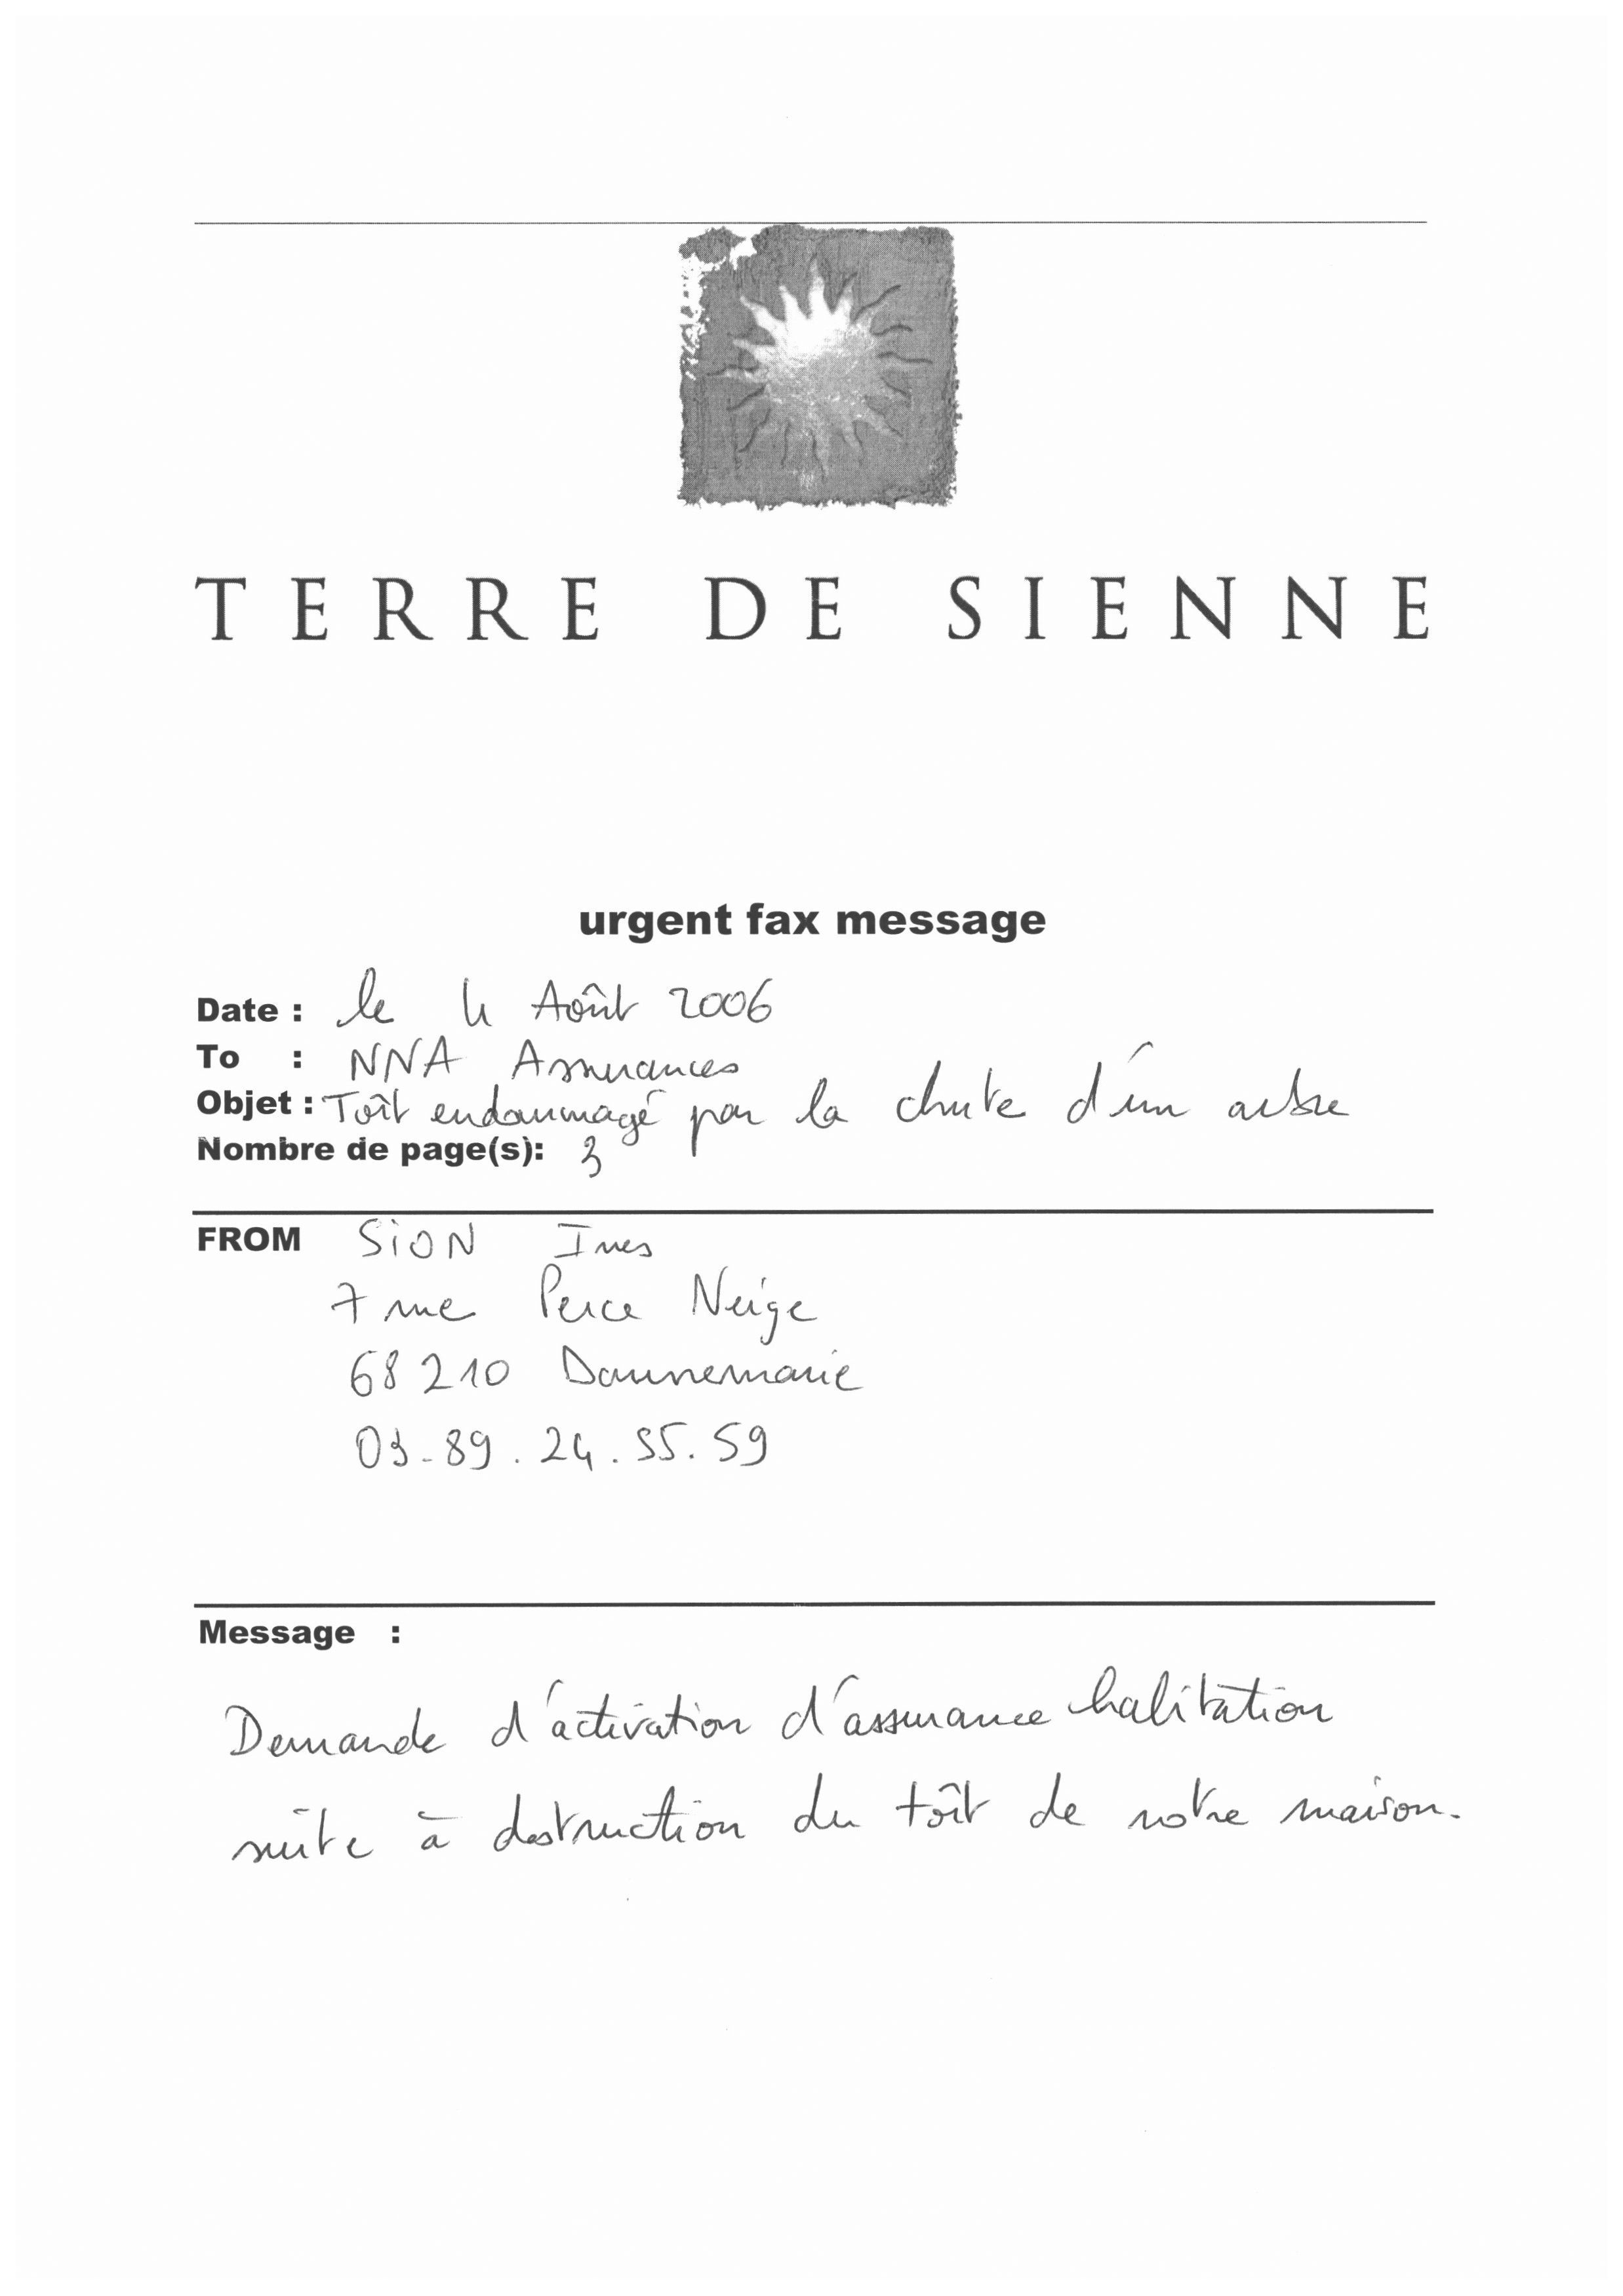 TERRE DE SIENNE
urgent fax message
Date : le 4 Août 2006
To : NNA Assurances
Objet : Toît endommagé par la chute d'un arbre
Nombre de page(s): 3
FROM SiON Ines
7 rue Perce Neige
68210 Dannemarie
03.89.24.55.59
Message :
Demande d'activation d'assurance habitation
suite à destruction du toît de notre maison.